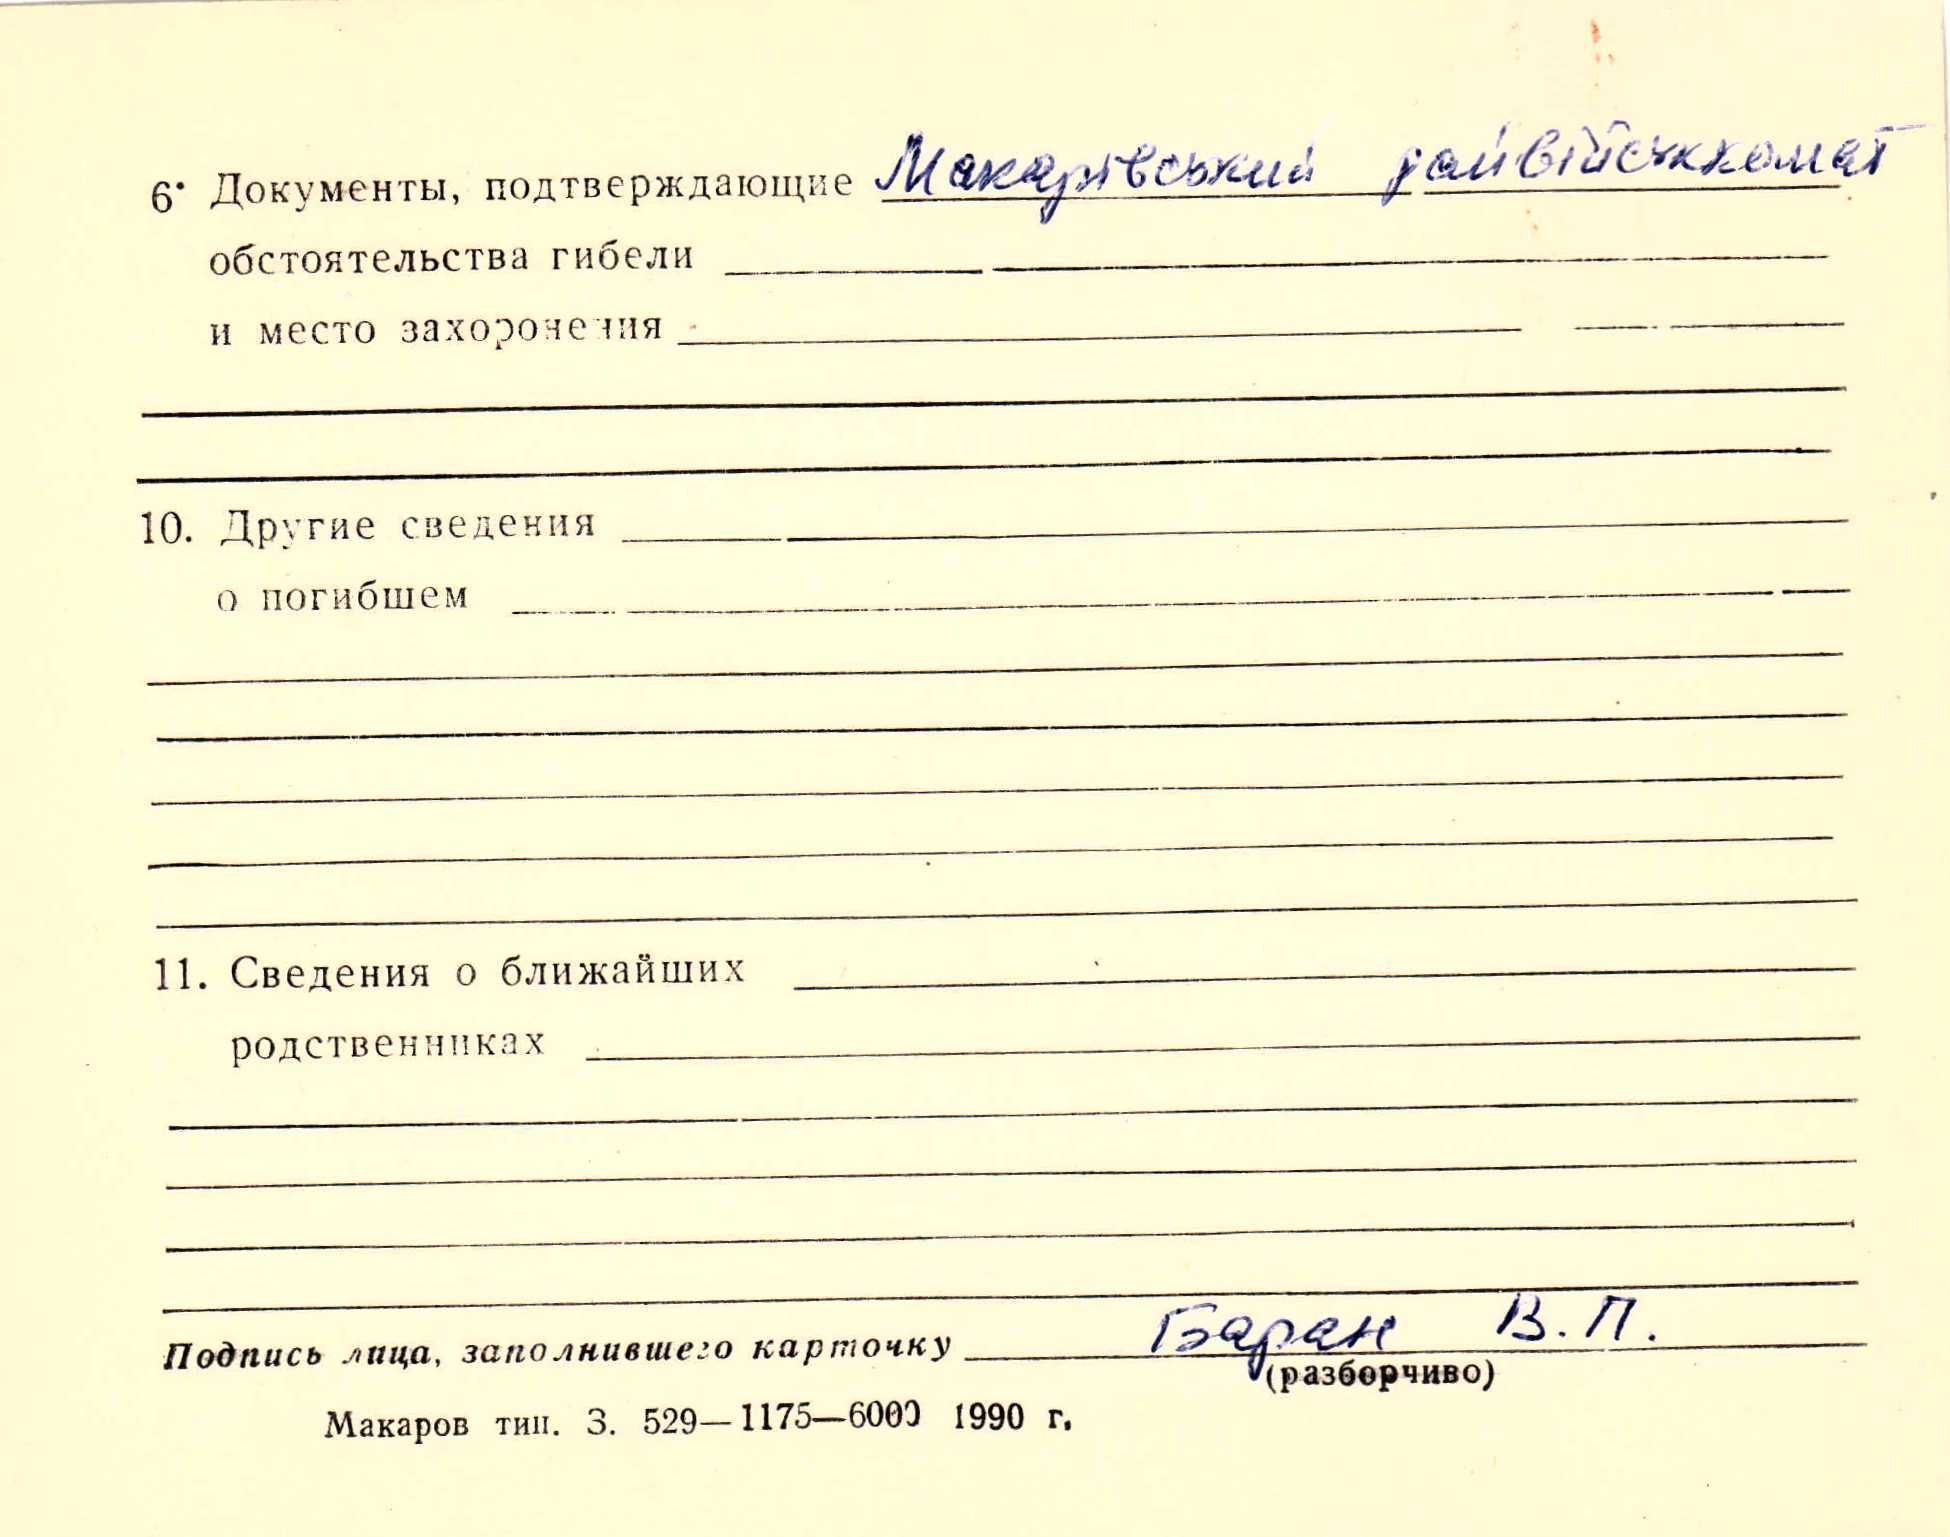 6. Документы, подтверждающие Макарівський райвійськкомат
обстоятельства гибели
и место захоронения
10. Другие сведения
о погибшем
11. Сведения о ближайших
родственниках
Подпись лица, заполнившего карточку Баран В. П.
(разборчиво)
Макаров тип. З. 529—1175—6000 1990 г.